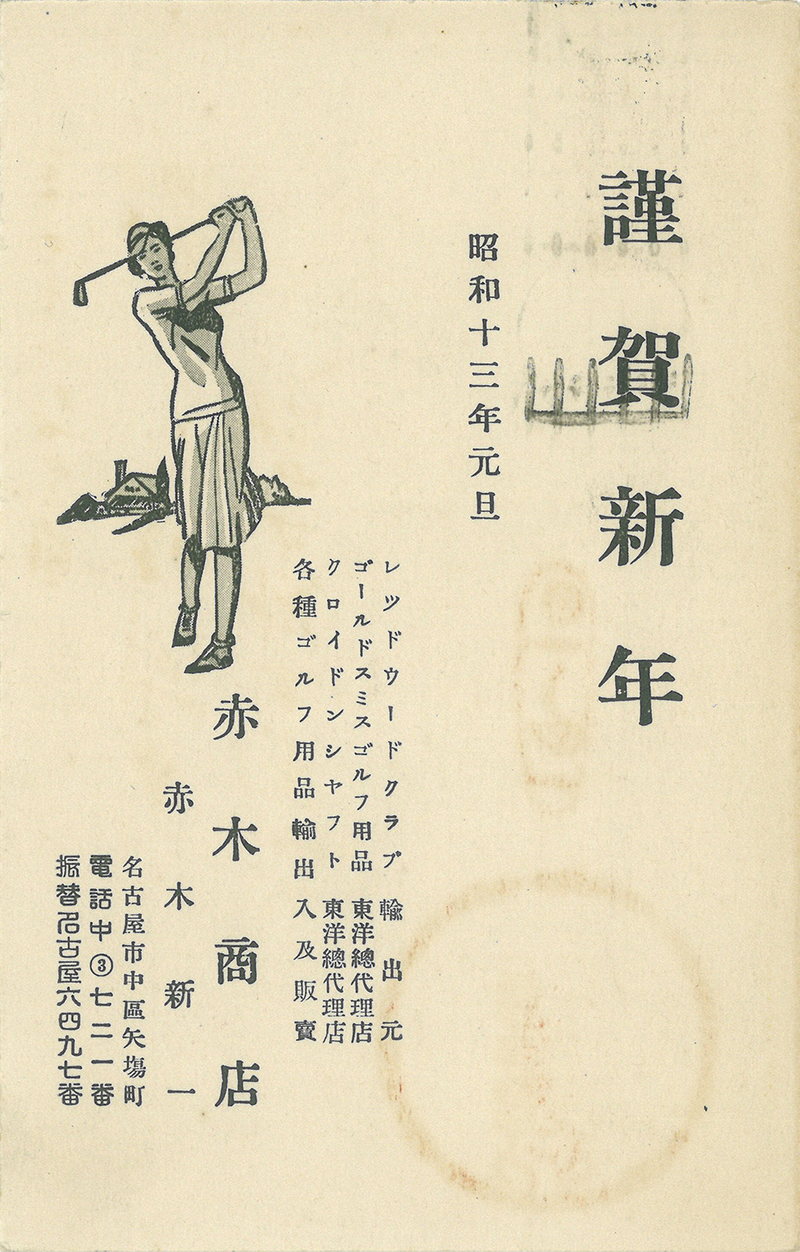 謹賀新年
昭和十三年元旦
レツドウードクラブ 輸出元
ゴールドスミスゴルフ用品 東洋總代理店
クロイドンシヤフト 東洋總代理店
各種ゴルフ用品輸出入及販賣
赤木商店
赤木新一
名古屋市中區矢場町
電話中③七二一番
振替名古屋六四九七番